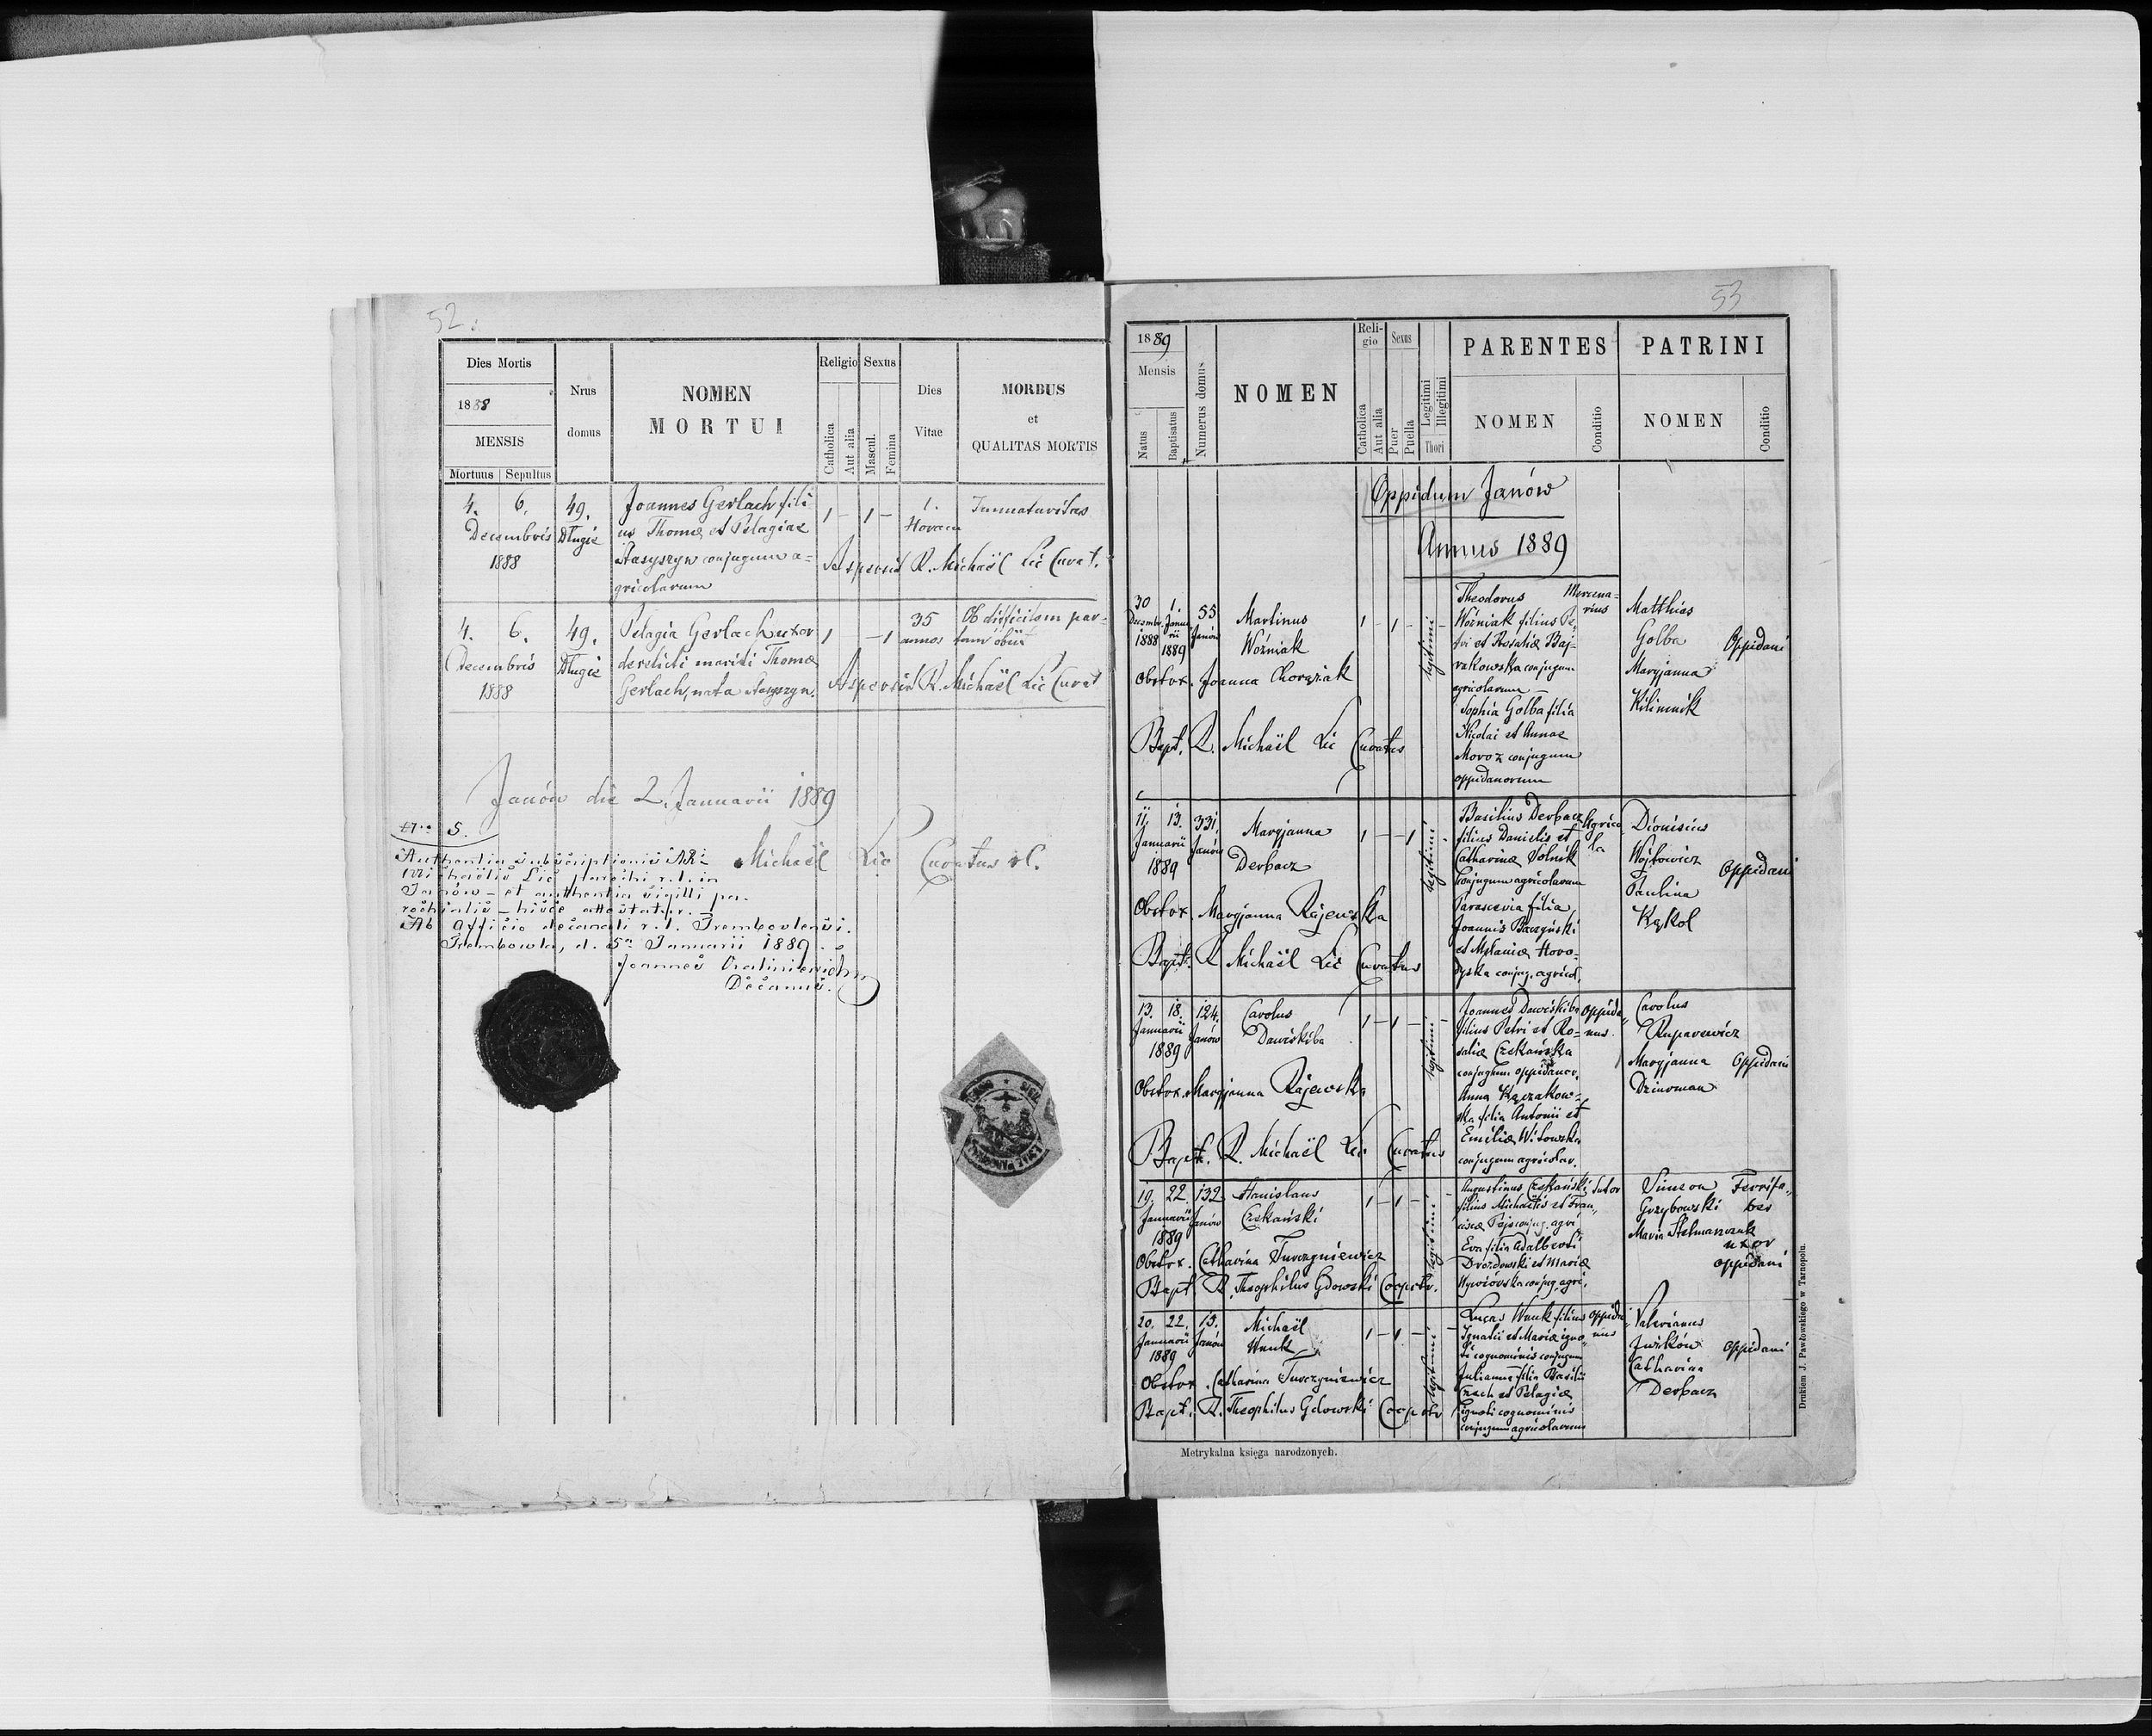 52.
Dies Mortis
1888
MENSIS
Mortuus Sepultus
Nrus
domus
NOMEN
MORTUI
Religio Sexus
Catholica
Aut alia
Mascul.
Femina
Dies
Vitae
MORBUS
et
QUALITAS MORTIS
4. 6. 49. Joannes Gerlach fili 1 - 1 - 1. Immaturitas
Decembris Długie us Thomæ et Pelagiae Horam
1888 Stasyszyn conjugum a=
gricolarum
Aspersit R. Michaël Lic Curat.
4. 6. 49. Pelagia Gerlach uxor 1 - 1 35 Ob difficilem par=
Decembris Długie derelicti mariti Thomæ annos tum obiit
1888 Gerlach, nata Stasyszyn.
Aspersit R. Michaël Lic Curat
Janów die 2. Januarii 1889
Michaël Lic Curatus r.l.
5.
Authentia subscriptionis
Michaëlis Lic parochi r. l. in
Janów - et authentia sigilli pa-
rochialis - hisce attestatur. -
Ab Officio decanali r. l. Trembovlensi.
Trembowla, d. 5a Januarii 1889.
Joannes
Decanus.
53
1889
Mensis
Natus
Baptisatus
Numerus domus
NOMEN
Reli-
gio
Catholica
Aut alia
Sexus
Puer
Puella
Legitimi
Illegitimi
Thori
PARENTES
NOMEN
Conditio
PATRINI
NOMEN
Conditio
Oppidum Janów
Annus 1889
30 1. 55 Martinus 1 - 1 - legitimi
Decembr. Janua
rii Janów
1888 1889 Woźniak
Obstetr. Joanna Chorąziak
Bapt. R. Michaël Lic Curatus
Theodorus Mercena=
rius
Woźniak filius Pe=
tri et Rosaliæ Baj=
rakowska conjugum
agricolarum -
Sophia Golba filia
Nicolai et Annae
Moroz conjugum
oppidanorum
Matthias
Golba Oppidani
Maryjanna
Kilimnik
11. 13. 331. Maryjanna 1 - - 1 legitimi
Januarii Janów
1889 Derbacz
Obstetr. Maryjanna Rajewska
Bapt. R. Michaël Lic Curatus
Basilius Derbacz Agrico
la
filius Danielis et
Catharinæ Solnik
conjugum agricolarum
Parascevia filia
Joannis
et Melaniæ Horo=
dyska conjug. agricol.
Dionisius
Wójtowicz Oppidani
Paulina
Kąkol
13. 18. 124. Carolus 1 - 1 - legitimi
Januarii Janów
1889
Obstetr. Maryjanna Rajewska
Bapt. R. Michaël Lic Curatus
Joannes oppida
nus.
filius Petri et Ro=
saliæ Czekańska
conjugum oppidanor.
Anna Kączakow=
ska filia Antonii et
Emiliæ Witowska
conjugum agricolar.
Carolus
Ruparewicz
Maryjanna Oppidani
Dziurman
19. 22. 132. Stanislaus 1 - 1 - legitimi
Januarii Janów Czekański
1889
Obstetr. Catharina Turczyniewicz
Bapt. R. Theophilus Gdowski Cooperator.
Augustinus Czekański Sutor
filius Michaëlis et Fran=
ciscæ conjug. agri.
Eva filia Adalberti
Drozdowski et Mariæ
conjug. agri.
Simeon Ferrifa=
Grzybowski ber
Maria Stelmaszczuk
uxor
oppidani
20. 22. 13. Michaël 1 - 1 - legitimi
Januarii Janów Wnuk
1889
Obstetr. Catharina Turczyniewicz
Bapt. R. Theophilus Gdowski Cooperator
Lucas Wnuk filius oppida
nus
Ignatii et Mariæ igno=
ti cognominis conjugum
Julianna filia Basilii
et Pelagiæ
ignoti cognominis
conjugum agricolarum
Valerianus
Juzków Oppidani
Catharina
Derbacz
Metrykalna księga narodzonych.
Drukiem J. Pawłowskiego w Tarnopolu.